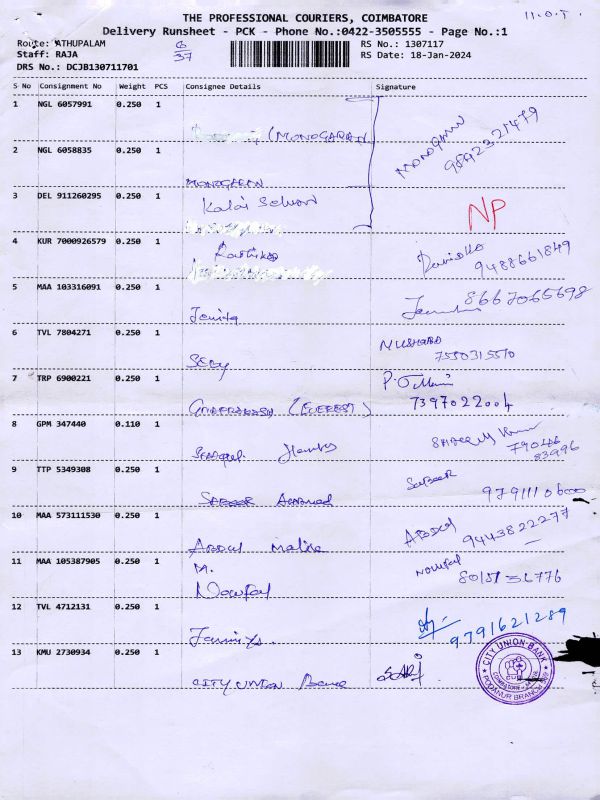 THE PROFESSIONAL COURIERS, COIMBATORE
11.0.T.
Delivery Runsheet - PCK - Phone No.:0422-3505555 - Page No.:1
Route: ATHUPALAM RS No.: 1307117
Staff: RAJA 37 RS Date: 18-Jan-2024
DRS No.: DCJB130711701
S No Consignment No Weight PCS Consignee Details Signature
1 NGL 6057991 0.250 1
(MONOGARAN MONOGARAN
9892321479
2 NGL 6058835 0.250 1
MONOGARAN
3 DEL 911260295 0.250 1 Kalai Selvan NP
4 KUR 7000926579 0.250 1 9488661849
5 MAA 103316091 0.250 1 8667065698
6 TVL 7804271 0.250 1 NUSHARD
7 TRP 6900221 0.250 1
(EVEREST) 7397022004
8 GPM 347440 0.110 1 790486
83996
9 TTP 5349308 0.250 1 SABEER
SABEER AHAMED
10 MAA 573111530 0.250 1 ABDUL
ABDUL Malik 9443822277
11 MAA 105387905 0.250 1 M. NOWFAL
Nowfal
12 TVL 4712131 0.250 1 9791621289
13 KMU 2730934 0.250 1
CITY UNION Bank
CITY UNION BANK
PODANUR BRANCH
CUB